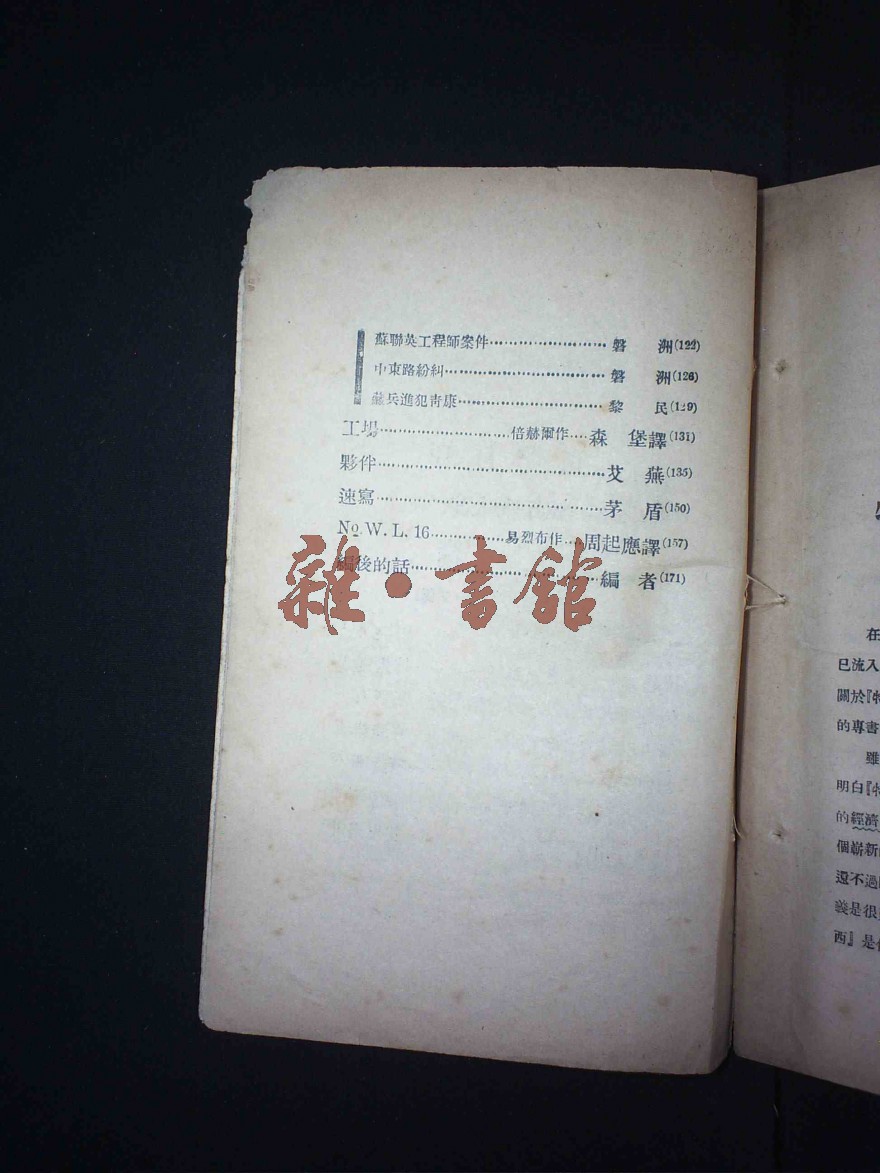 蘇聯英工程師案件……………………磐　洲(122)
中東路紛糾……………………………磐　洲(126)
蘇兵進犯青康…………………………黎　民(129)
工場……………………倍赫爾作……森　堡譯(131)
夥伴……………………………………艾　蕪(135)
速寫……………………………………茅　盾(150)
No. W. L. 16……………易烈布作……周起應譯(157)
編後的話………………………………編　者(171)
雜·書館
在
已流入
關於『特
的專書
雖
明白『特
的經濟
個嶄新
還不過
義是很
西』是